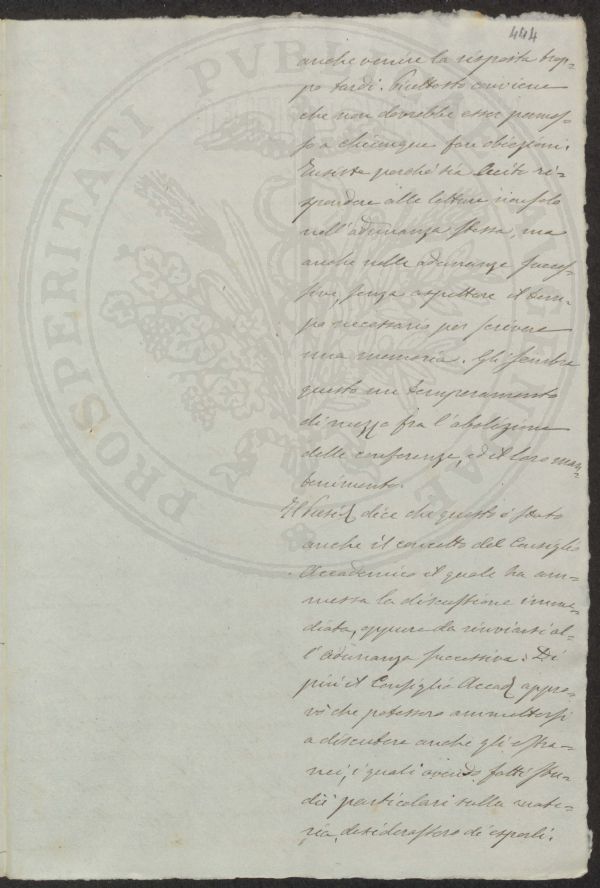 444
anche venire la risposta trop-
po tardi. Piuttosto conviene
che non dovrebbe esser permes-
so a chiunque fare obiezioni.
Insiste perchè sia lecito ri-
spondere alle letture non solo
nell'adunanza stessa, ma
anche nelle adunanze succes-
sive, senza aspettare il tem-
po necessario per scrivere
una memoria. Gli sembra
questo un temperamento
di mezzo fra l'abolizione
delle conferenze, ed il loro man-
tenimento.
Il dice che questo è stato
anche il concetto del Consiglio
Accademico il quale ha am-
messa la discussione imme-
diata, oppure da rinviarsi al-
l'adunanza successiva. Di
più il Consiglio Accad. appro-
vò che potessero ammettersi
a discutere anche gli estra-
nei, i quali avendo fatti stu-
dii particolari sulla mate-
ria, desiderassero di esporli.
PROSPERITATI PVBLICAE AVGENDAE